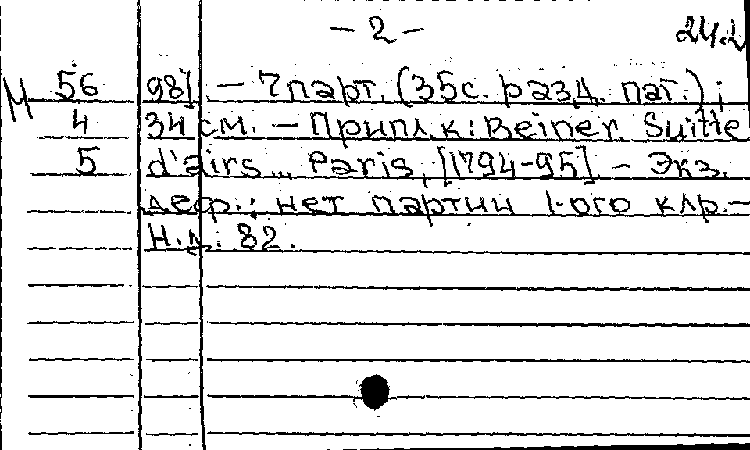 – 2 –
M 56 98] – 7 парт. (35 с. разд. паг.) ;
4 34 см. – Припл. к: Beiner. Suite
5 d'airs... Paris, [1794-95] – Экз.
деф.: нет партии 1-ого клр. –
Н.д. 82.